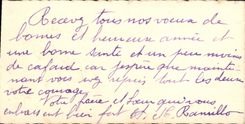 Recevez tous nos voeux de
bonne et heureuse année et
une bonne santé et un peu moins
de cafard car j'espère que mainte
nant vous avez repris tout les deux
votre courage
Votre frère et soeur qui vous
embrassent bien fort